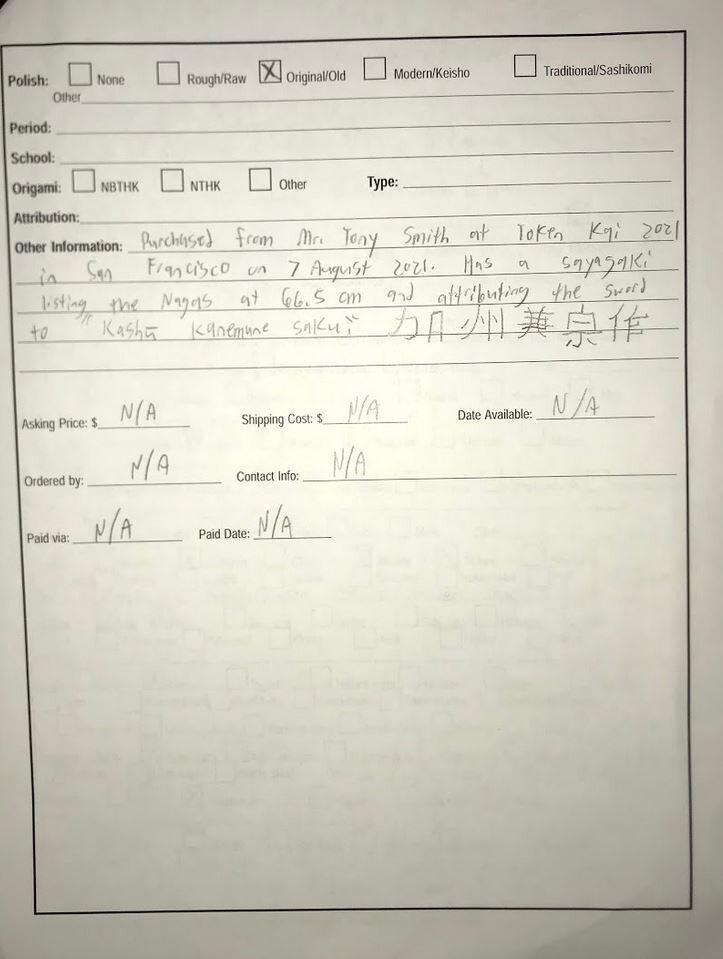 Polish: None Rough/Raw X Original/Old Modern/Keisho Traditional/Sashikomi
Other
Period:
School:
Origami: NBTHK NTHK Other Type:
Attribution:
Other Information: Purchased from Mr. Tony Smith at Token Kai 2021
in San Francisco on 7 August 2021. Has a sayagaki
listing the Nagas at 66.5 cm and attributing the sword
to "Kashū Kanemune saku" 加州兼宗作
Asking Price: $ N/A Shipping Cost: $ N/A Date Available: N/A
Ordered by: N/A Contact Info: N/A
Paid via: N/A Paid Date: N/A